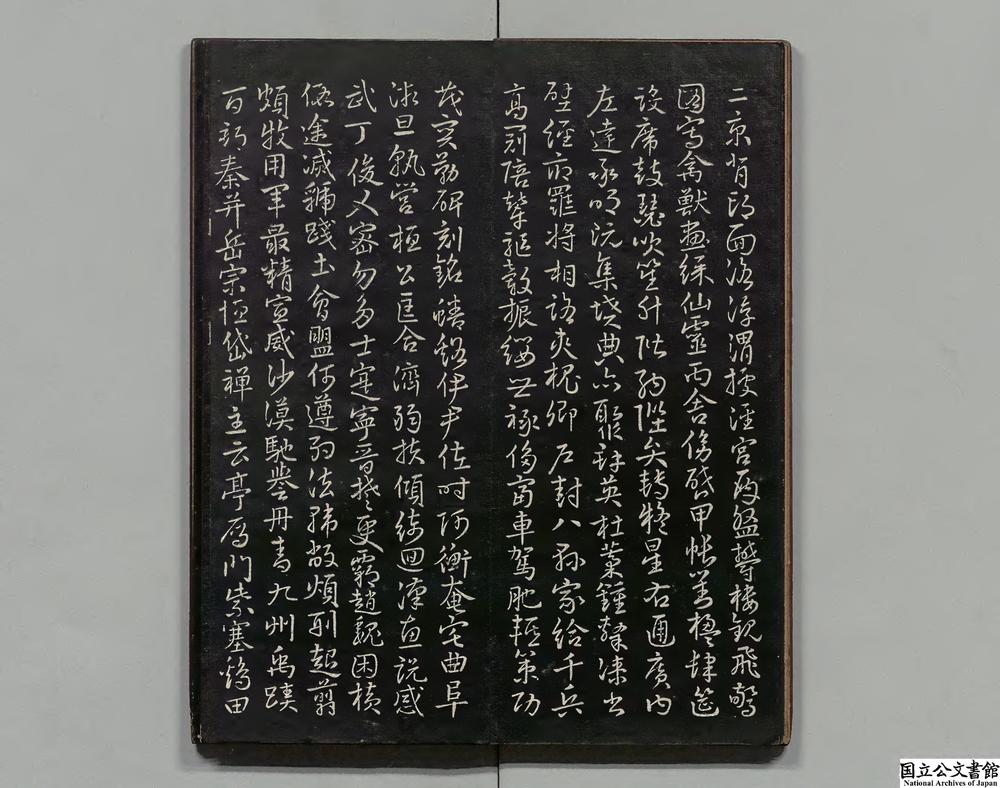 二京背邙面洛浮渭據涇宮殿盤鬱樓觀飛驚
圖寫禽獸畫綵仙靈丙舍傍啟甲帳對楹肆筵
設席鼓瑟吹笙升階納陛弁轉疑星右通廣內
左達承明既集墳典亦聚群英杜稾鍾隸漆書
壁經府羅將相路俠槐卿戶封八縣家給千兵
高冠陪輦驅轂振纓世祿侈富車駕肥輕策功
茂實勒碑刻銘磻溪伊尹佐時阿衡奄宅曲阜
微旦孰營桓公匡合濟弱扶傾綺迴漢惠說感
武丁俊乂密勿多士寔寧晉楚更霸趙魏困橫
假途滅虢踐土會盟何遵約法韓弊煩刑起翦
頗牧用軍最精宣威沙漠馳譽丹青九州禹蹟
百郡秦并岳宗恒岱禪主云亭雁門紫塞雞田
国立公文書館
National Archives of Japan